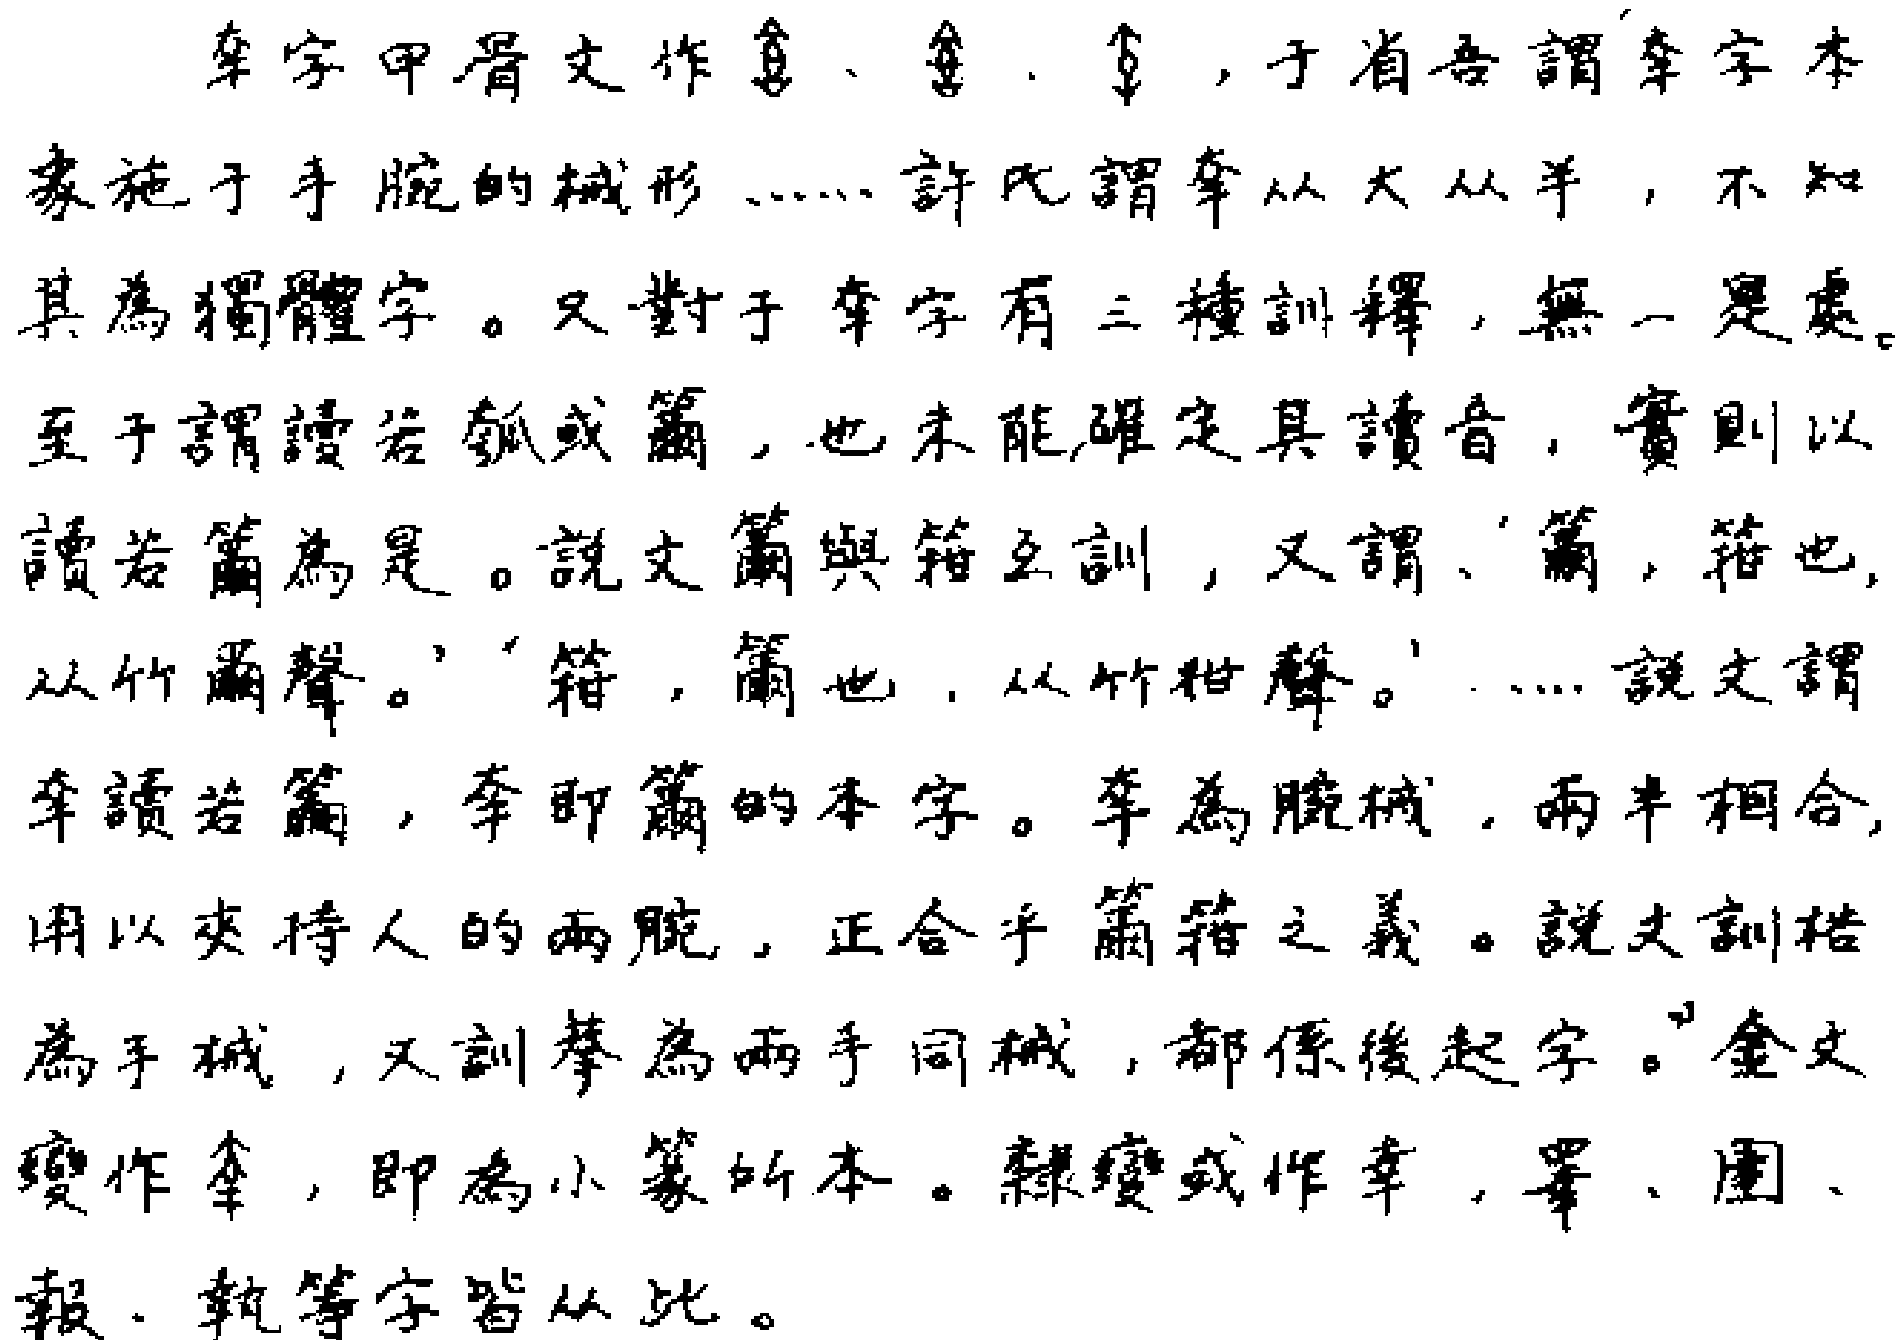 㚔字甲骨文作、、,于省吾謂‘㚔字本
象施于手腕的械形……許氏謂㚔从大从𢆉,不知
其為獨體字。又對于㚔字有三種訓釋,無一是處。
至于謂讀若瓠或籋,也未能確定其讀音,實則以
讀若籋為是。說文籋與箝互訓,又謂、‘籋,箝也,
从竹爾聲。’‘箝,籋也,从竹拑聲。’……說文謂
㚔讀若籋,㚔即籋的本字。㚔為腕械,兩半相合,
用以夾持人的兩腕,正合乎籋箝之義。說文訓梏
為手械,又訓㭟為兩手同械,都係後起字。”金文
變作,即為小篆所本。隸變或作幸,睪、圉、
報、執等字皆从此。